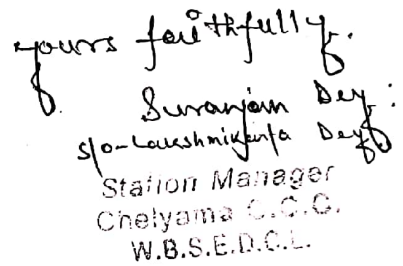 yours faithfully.
Suranjan Dey.
S/o - Lakshmikanta Dey.
Station Manager
Chelyama C.C.C.
W.B.S.E.D.C.L.